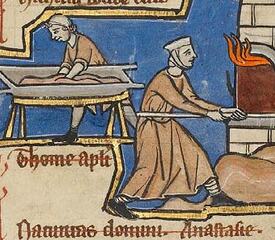 Thome apli
Natiuitas domini. Anastasie.